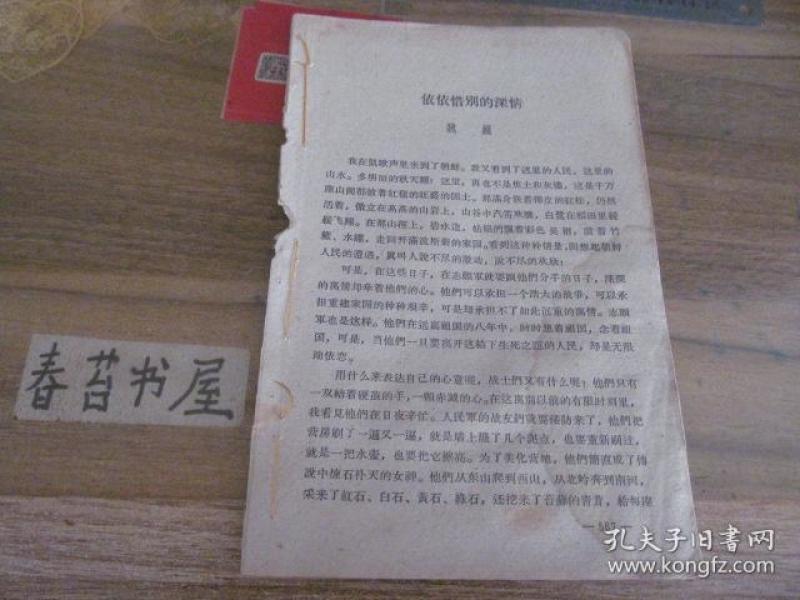 依依惜别的深情
魏巍
我在凱歌声里来到了朝鮮。我又看到了这里的人民，这里的
山水。多明丽的秋天啊！这里，再也不是焦土和灰燼，这是千万
座山崗都披着紅毯的旺盛的国土。那滿身嵌着弹皮的紅松，仍然
活着，傲立在高高的山岩上，山谷中汽笛欢騰，白鷺在稻田里緩
緩飞翔。在那山徑上，碧水边，姑娘們飄着彩色長裙，頂着竹
籃、水罐，走回开滿波斯菊的家园。看到这种种情景，回想起朝鮮
人民的遭遇，真叫人說不尽的激动，說不尽的欢欣！
可是，在这些日子，在志願軍就要跟他們分手的日子，深深
的离情却牽着他們的心。他們可以承担一个浩大的战爭，可以承
担重建家园的种种艰辛，可是却承担不了如此沉重的离情。志願
軍也是这样。他們在远离祖国的八年中，时时想着祖国，念着祖
国，可是，当他們一旦要离开这結下生死之誼的人民，却是无限
地依恋。
用什么来表达自己的心意呢，战士們又有什么呢？他們只有
一双結着硬繭的手，一顆赤誠的心。在这离別以前的有限时刻里，
我看見他們在日夜辛忙。人民軍的战友們就要接防来了，他們把
营房刷了一遍又一遍，就是墙上濺了几个泥点，也要重新刷过，
就是一把水壺，也要把它擦亮。为了美化营地，他們簡直成了传
說中煉石补天的女神。他們从东山爬到西山，从北岭奔到南河，
采来了紅石、白石、黃石、綠石，还挖来了苔蘚的青青，給每座
春苔书屋
孔夫子旧书网
kongfz.com